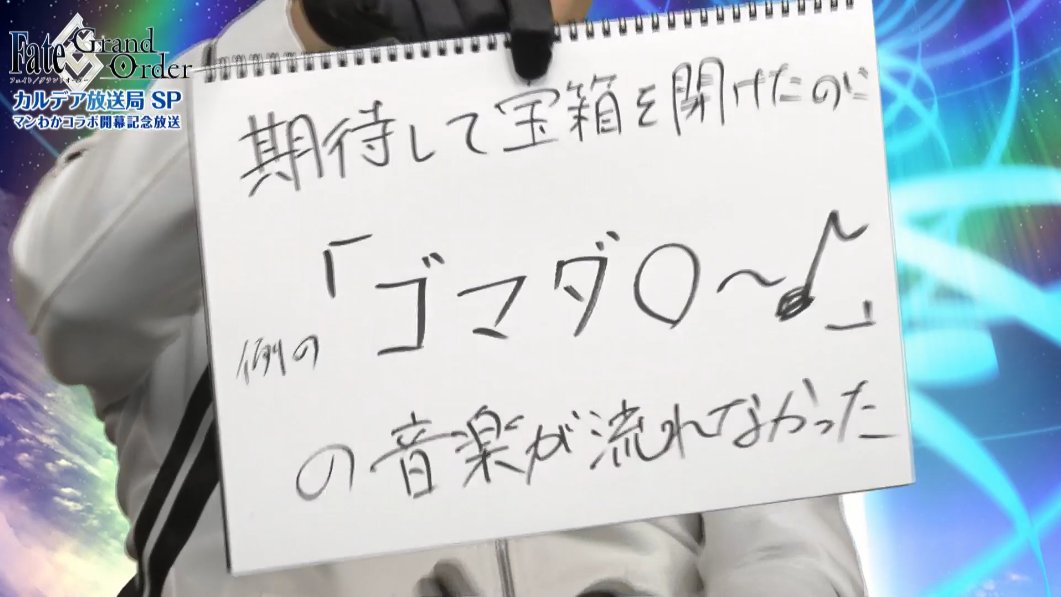 Fate
Grand
Order
フェイト/グランドオーダー
カルデア放送局 SP
マンわかコラボ開幕記念放送
期待して宝箱を開けたのに
例の「ゴマダ〇〜♪」
の音楽が流れなかった